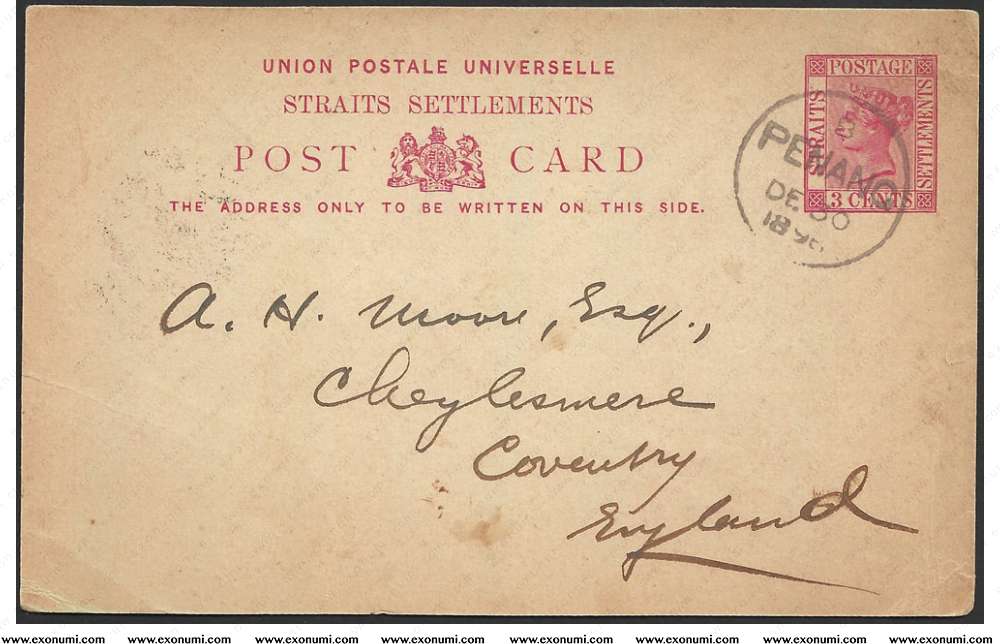 UNION POSTALE UNIVERSELLE
STRAITS SETTLEMENTS
POST CARD
THE ADDRESS ONLY TO BE WRITTEN ON THIS SIDE.
POSTAGE
STRAITS
SETTLEMENTS
3 CENTS
PENANG
DE 30
A. H. Moore, Esq.,
Cheylesmere
Coventry
England
www.exonumi.com www.exonumi.com www.exonumi.com www.exonumi.com www.exonumi.com www.exonumi.com www.exonumi.com www.exonumi.com